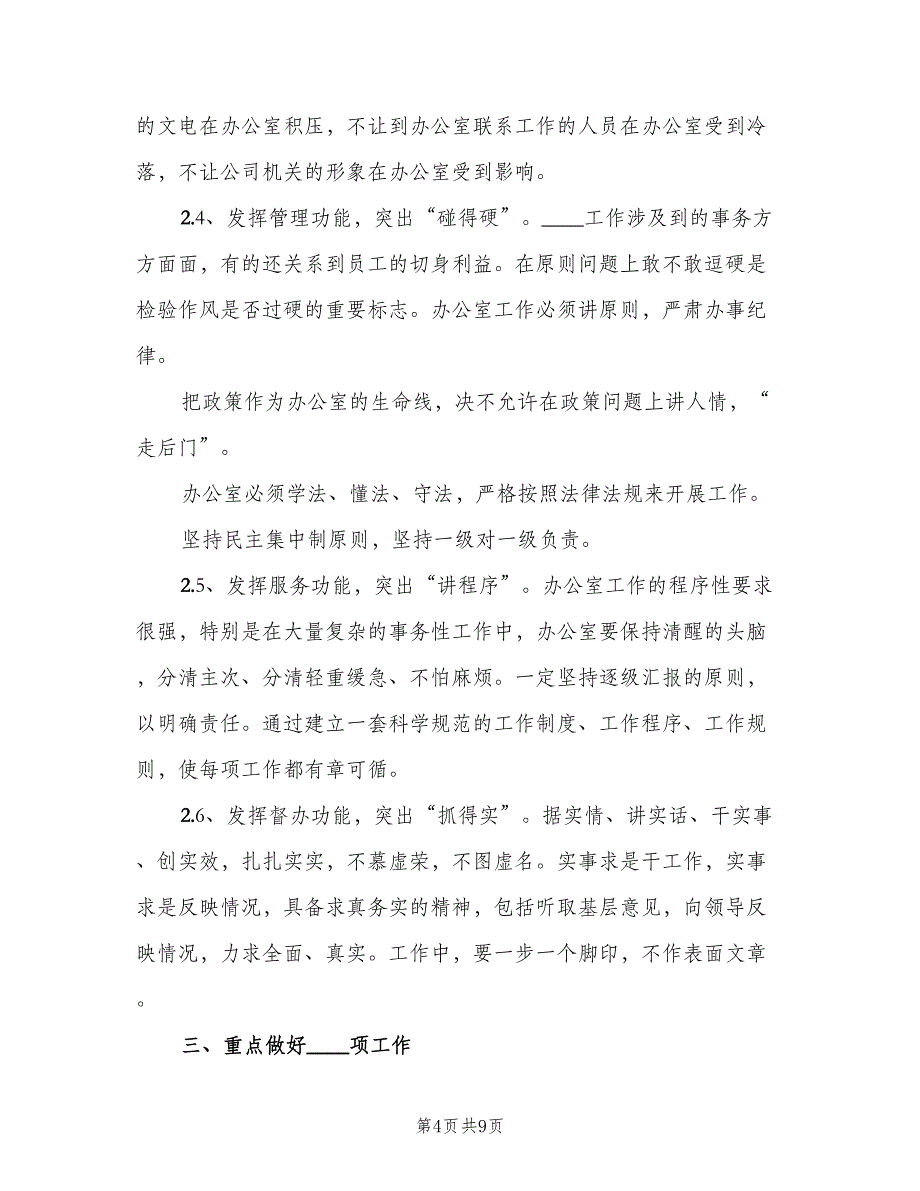 的文电在办公室积压，不让到办公室联系工作的人员在办公室受到冷
落，不让公司机关的形象在办公室受到影响。
2.4、发挥管理功能，突出“碰得硬”。____工作涉及到的事务方
方面面，有的还关系到员工的切身利益。在原则问题上敢不敢逗硬是
检验作风是否过硬的重要标志。办公室工作必须讲原则，严肃办事纪
律。
把政策作为办公室的生命线，决不允许在政策问题上讲人情，“
走后门”。
办公室必须学法、懂法、守法，严格按照法律法规来开展工作。
坚持民主集中制原则，坚持一级对一级负责。
2.5、发挥服务功能，突出“讲程序”。办公室工作的程序性要求
很强，特别是在大量复杂的事务性工作中，办公室要保持清醒的头脑
，分清主次、分清轻重缓急、不怕麻烦。一定坚持逐级汇报的原则，
以明确责任。通过建立一套科学规范的工作制度、工作程序、工作规
则，使每项工作都有章可循。
2.6、发挥督办功能，突出“抓得实”。据实情、讲实话、干实事
、创实效，扎扎实实，不慕虚荣，不图虚名。实事求是干工作，实事
求是反映情况，具备求真务实的精神，包括听取基层意见，向领导反
映情况，力求全面、真实。工作中，要一步一个脚印，不作表面文章
。
三、重点做好____项工作
第4页共9页